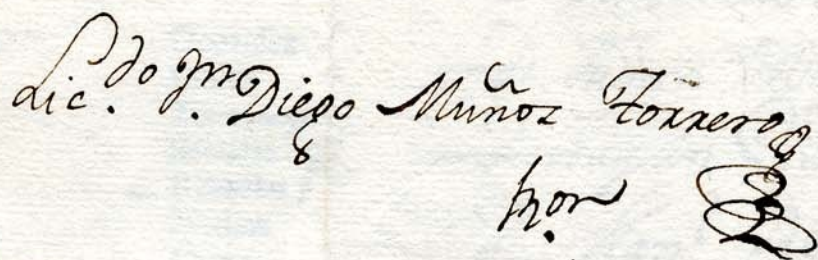 Lic.do Dn. Diego Muñoz Torrero